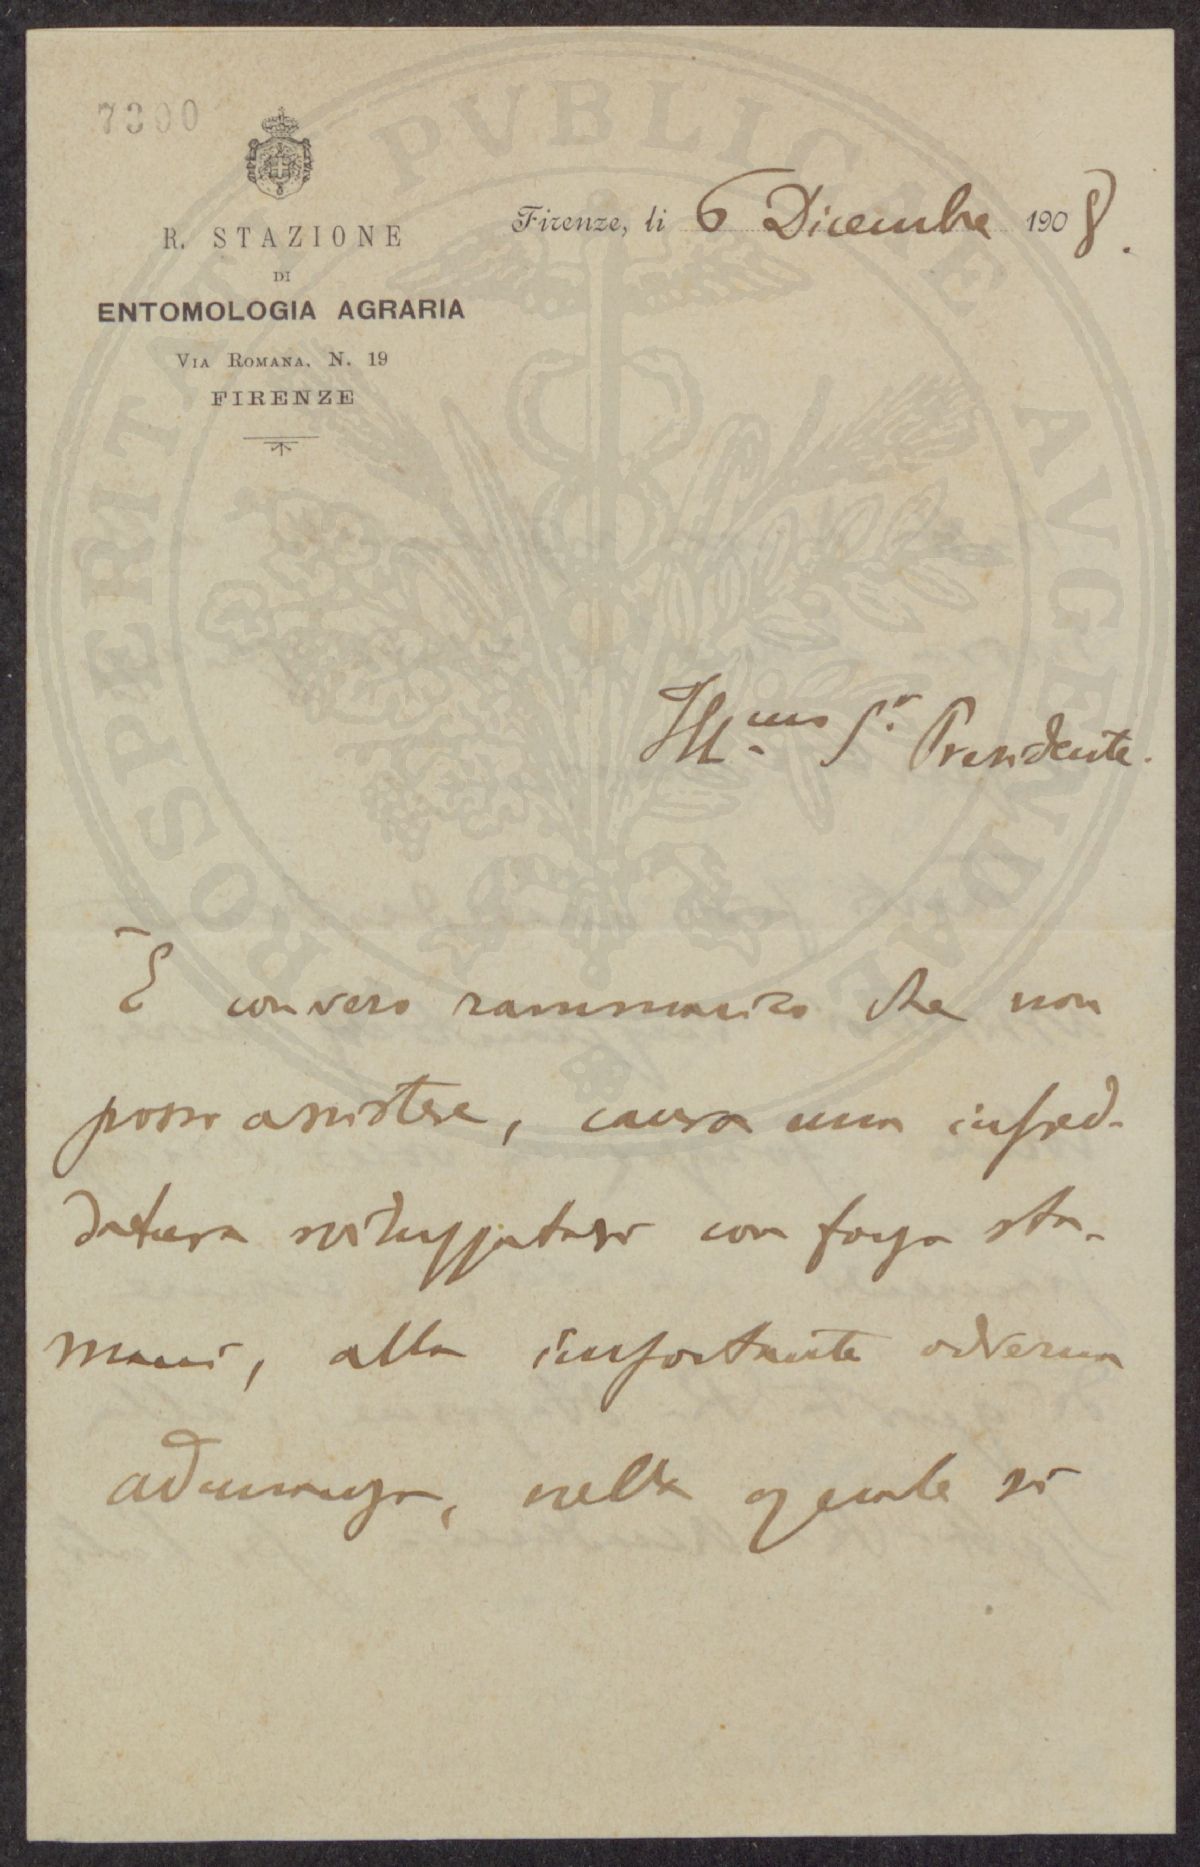 7300
R. STAZIONE
DI
ENTOMOLOGIA AGRARIA
VIA ROMANA, N. 19
FIRENZE
Firenze, li 6 Dicembre 1908.
Ill.mo S.r Presidente.
È con vero rammarico che non
posso assistere, causa una infred-
datura sviluppatasi con forza sta-
mani, alla importante odierna
adunanza, nella quale si
PROSPERITATI PVBLICAE AVGENDAE